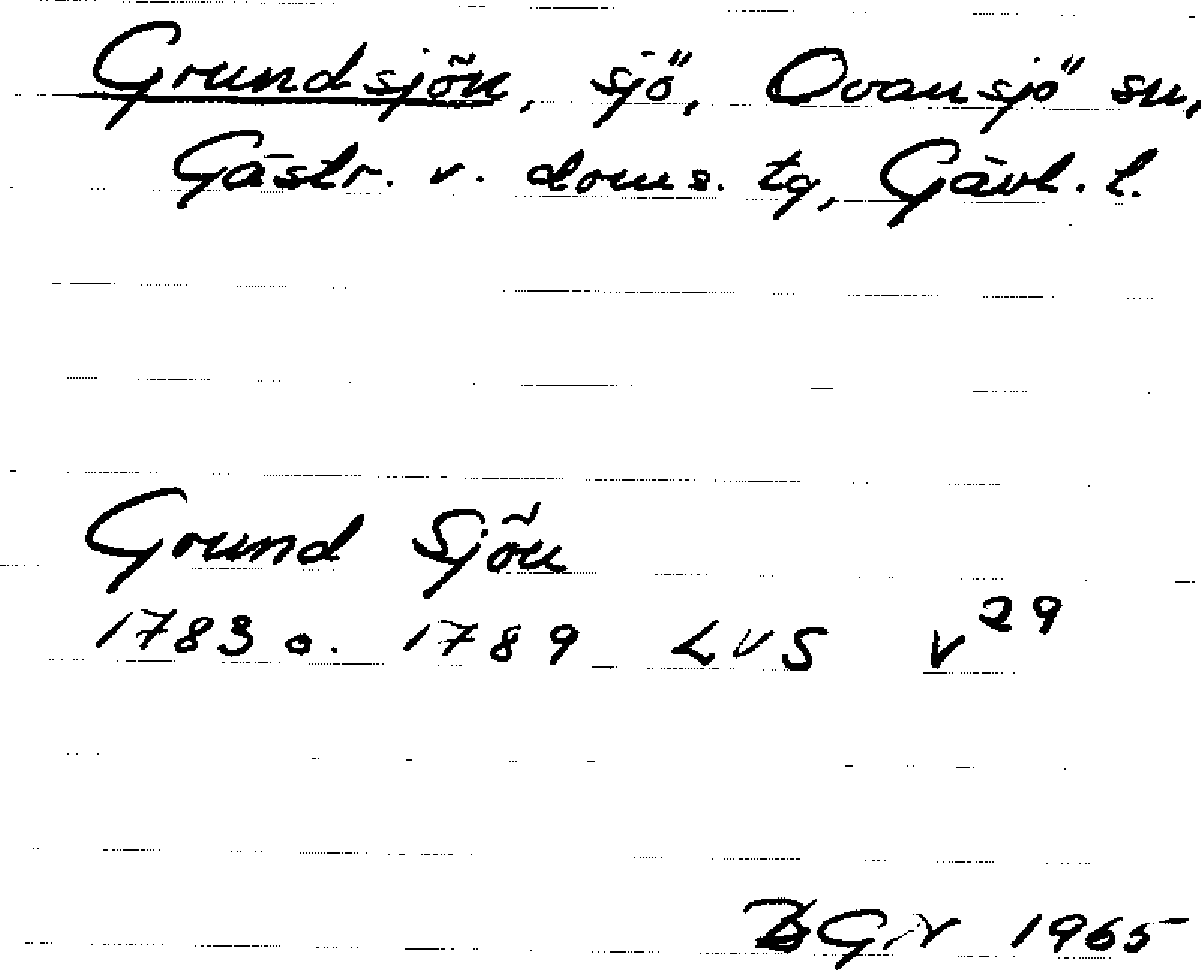 Grundsjön, sjö, Ovansjö sn,
Gästr. v. doms. tg, Gävl. l.
Grund Sjön
1783 o. 1789 LVS V29
BGN 1965